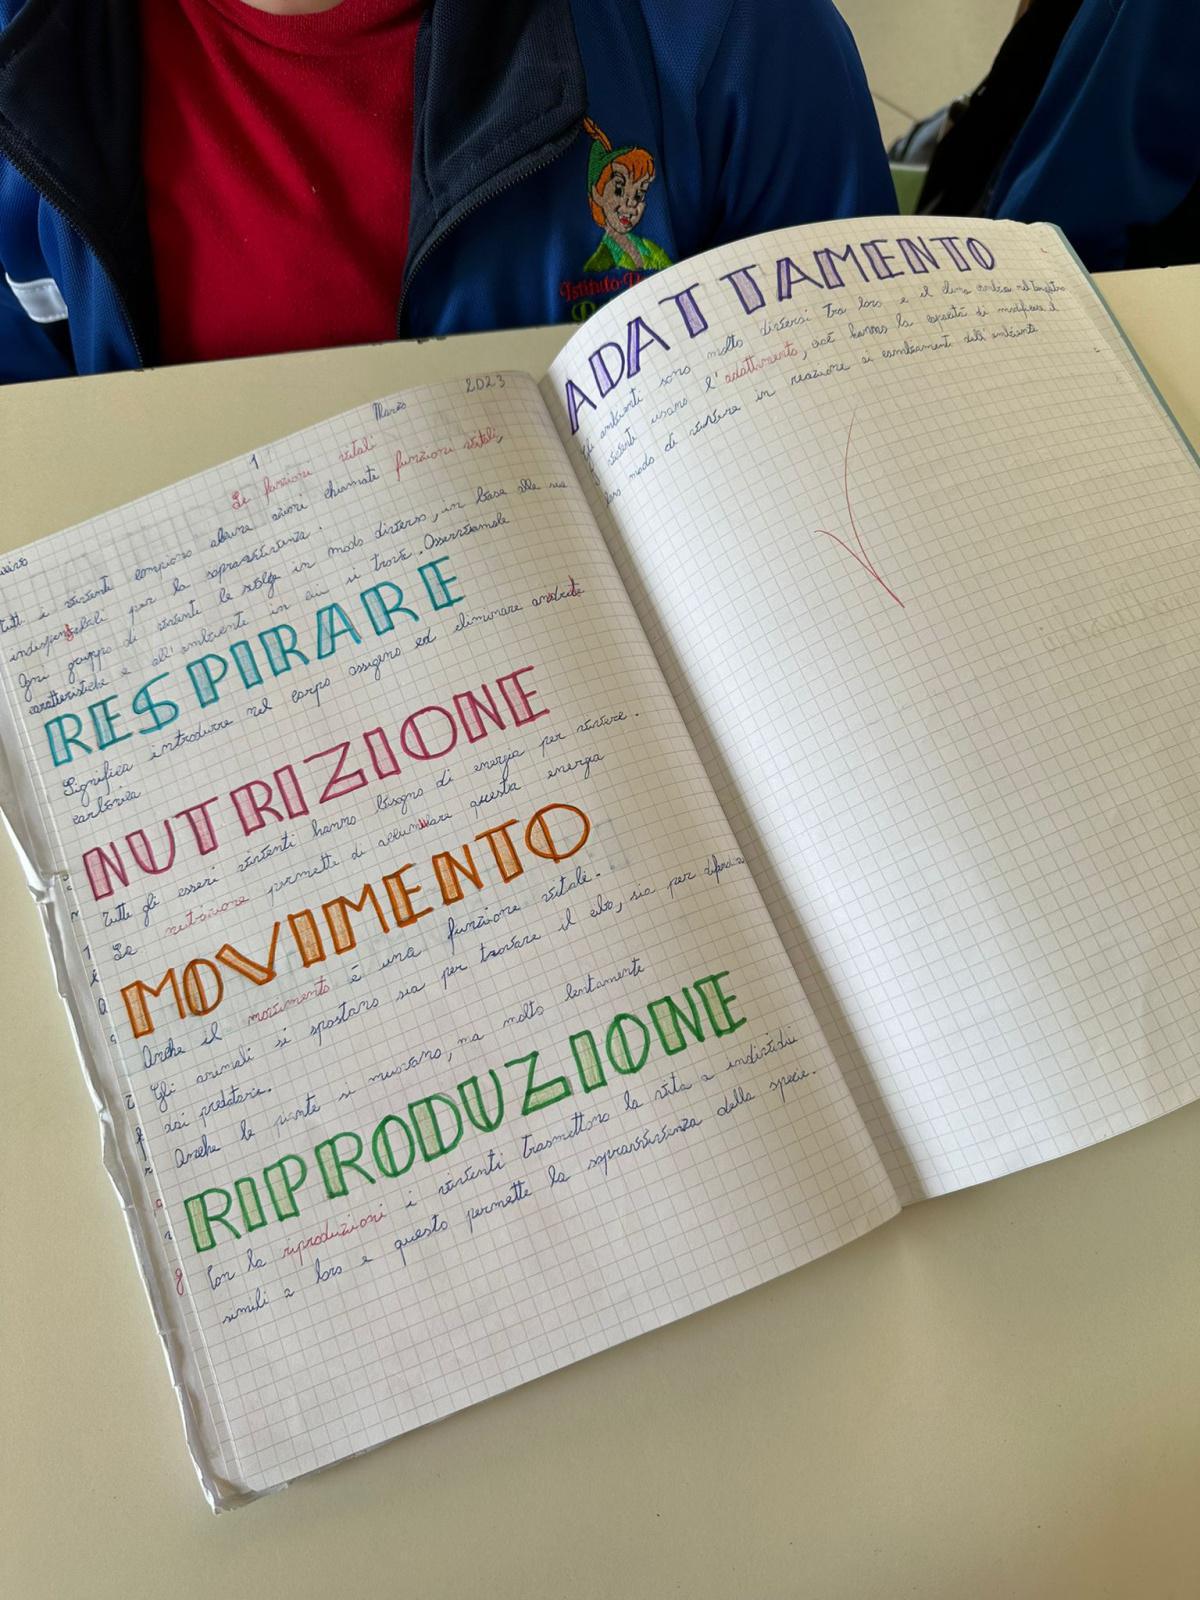 Istituto
1 Marzo 2023
Le funzioni vitali
Tutti i viventi compiono alcune azioni chiamate funzioni vitali,
indispensabili per la sopravvivenza.
Ogni gruppo di viventi le svolge in modo diverso, in base alle sue
caratteristiche e all'ambiente in cui si trova. Osserviamole
RESPIRARE
Significa introdurre nel corpo ossigeno ed eliminare anidride
carbonica
NUTRIZIONE
Tutti gli esseri viventi hanno bisogno di energia per vivere.
La nutrizione permette di accumulare questa energia
MOVIMENTO
Anche il movimento è una funzione vitale.
Gli animali si spostano sia per trovare il cibo, sia per difendersi
dai predatori.
Anche le piante si muovono, ma molto lentamente
RIPRODUZIONE
Con la riproduzioni i viventi trasmettono la vita a individui
simili a loro e questo permette la sopravvivenza della specie.
ADATTAMENTO
Gli ambienti sono molto diversi tra loro e il clima cambia nel tempo
I viventi usano l'adattamento, cioè hanno la capacità di modificare il
loro modo di vivere in reazione ai cambiamenti dell'ambiente